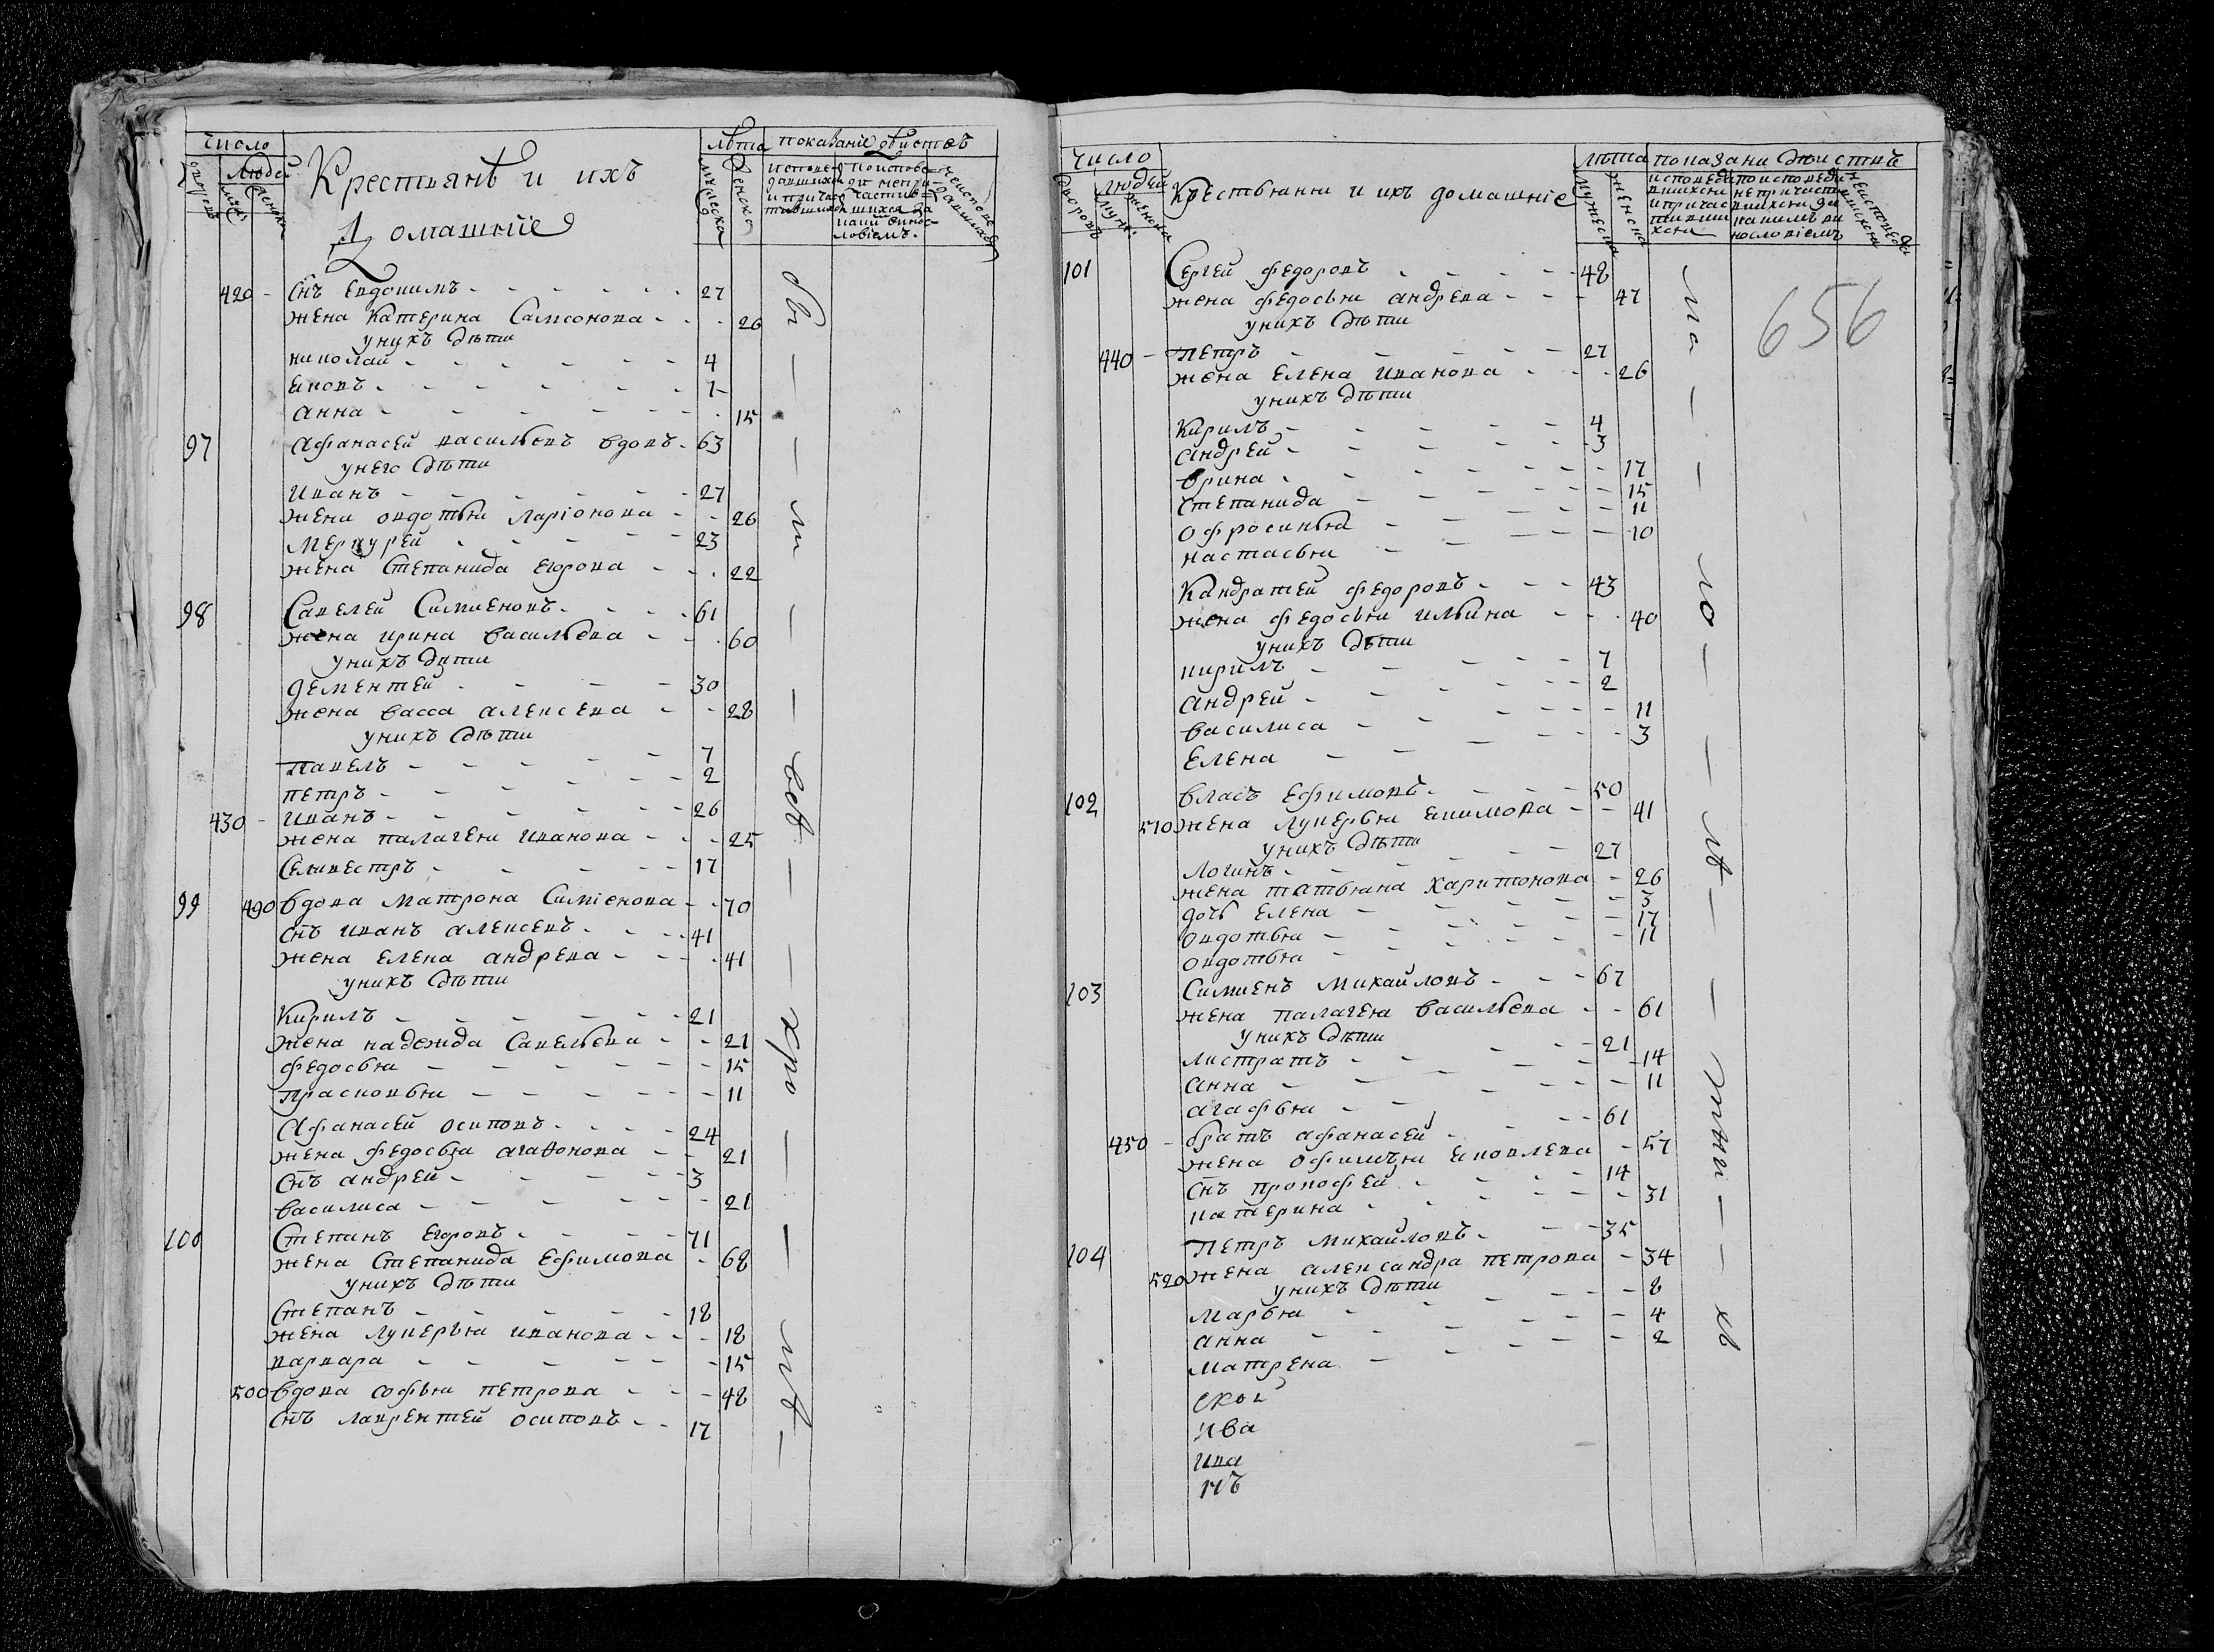 число
людей
дворовъ
мужс:
женска
Крестьянѣ и ихъ
Домашнiе
лѣта
мужеска
женска
показанiе дѣиствъ
исповедавшихся и причастившихся
по исповеди непричастившихся за каим винословiемъ.
неисповедавшихся
420 - Снъ Евдокимъ - 27
жена Катерина Самсонова - 26
унихъ дѣти
николаи - 4
яковъ - 1
анна - 15
97 афанасеи васильевъ вдовъ - 63
унего дѣти
иванъ - 27
жена овдотья ларiонова - 26
меркуреи - 23
жена степанида егорова - 22
98 Савелеи Симиеновъ - 61
жена ирина васильева - 60
унихъ дети
дементеи - 30
жена васса алексева - 28
унихъ дѣти
павелъ - 7
петръ - 2
430 - иванъ - 26
жена палагея иванова - 25
Селивестръ - 17
99 490 вдова матрона Симiенова - 70
снъ иванъ алексевъ - 41
жена елена андрева - 41
унихъ дѣти
Кирилъ - 21
жена надежда Савельева - 21
федосья - 15
прасковья - 11
Афанасеи осиповъ - 24
жена федосья агаѳонова - 21
снъ андреи - 3
василиса - 21
100 Степанъ егоровъ - 71
жена Степанида ефимова - 68
унихъ дѣти
Степанъ - 18
жена лукерья иванова - 18
варвара - 15
500 вдова софья петрова - 48
снъ лаврентеи осиповъ - 17
число
людей
дворовъ
мужс:
женска
Крестьяни и ихъ домашнiе
лѣта
мужеска
женска
показани дѣиствъ
исповедавшихся и причастившихся
по исповеди не причастившихся за каимъ винословiемъ
неисповедавшихся
656
101 Сергеи федоровъ - 48
жена федосья андрева - 47
унихъ дѣти
440 - петръ - 27
жена елена иванова - 26
унихъ дѣти
кирилъ - 4
андреи - 3
орина - 17
степанида - 15
офросинья - 11
настасья - 10
Кандратеи федоровъ - 43
жена федосья ильина - 40
унихъ дѣти
кирилъ - 7
андреи - 2
василиса - 11
елена - 3
102 власъ ефимовъ - 50
510 жена лукерья якимова - 41
унихъ дѣти
логинъ - 27
жена татьяна харитонова - 26
дочь елена - 3
овдотья - 17
овдотья - 11
103 Симиенъ михаиловъ - 67
жена палагея васильева - 61
унихъ дѣти
листратъ - 21
анна - 14
агафья - 11
450 - братъ афанасеи - 61
жена офимья яковлева - 57
снъ прокофеи - 14
катерина - 31
104 Петръ михаиловъ - 35
520 жена александра петрова - 34
унихъ дѣти
марья - 8
анна - 4
матрена - 2
ива
ива
нъ